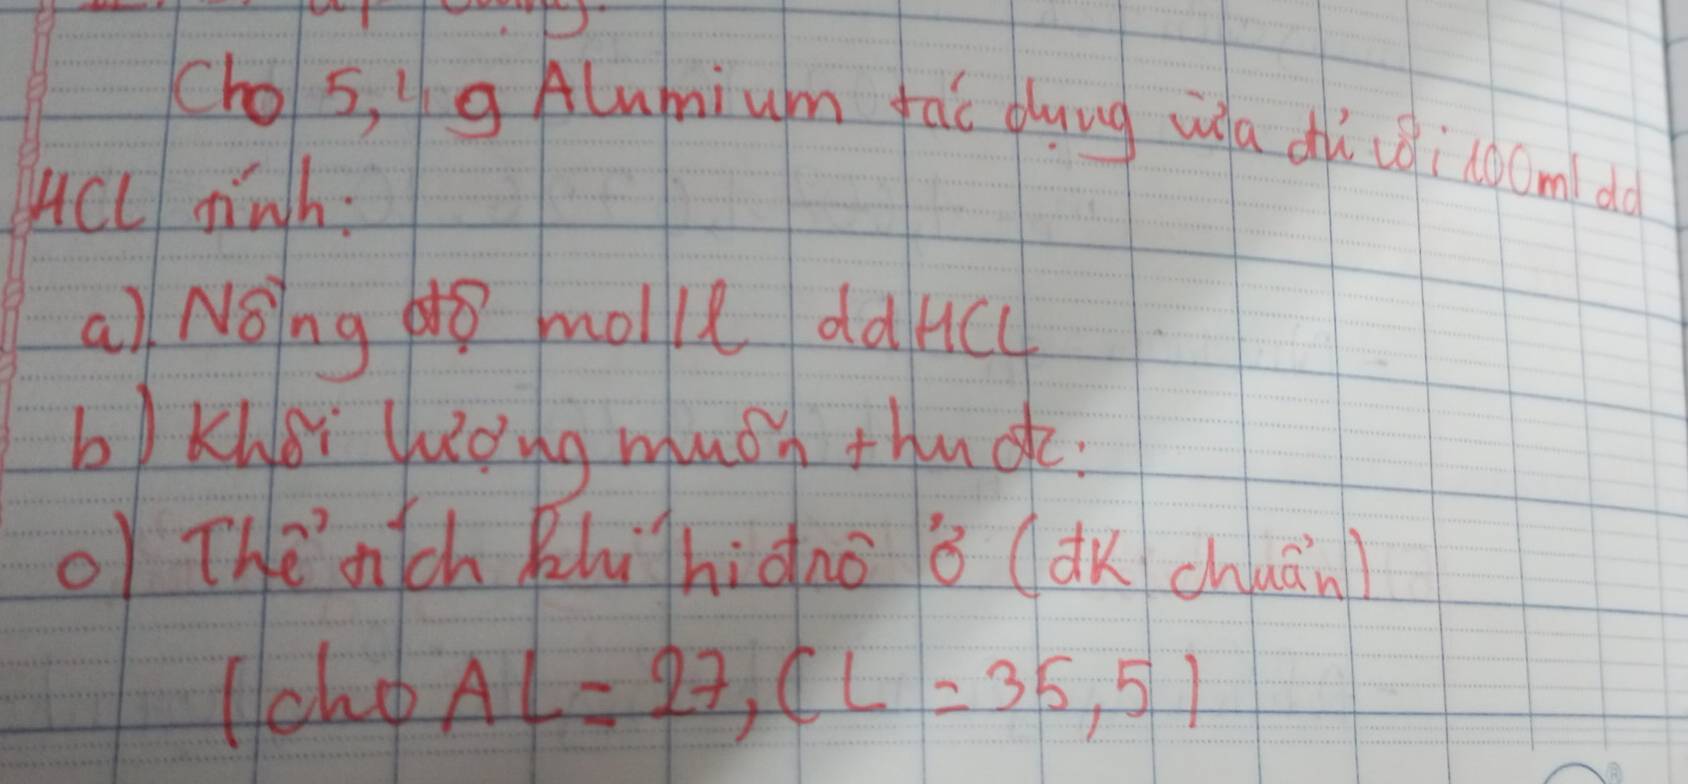 Cho 5,4 g Alumium tác dụng vừa đủ với 100ml dd
HCL tính:
a) Nồng độ mol/l ddHCL
b) Khối lượng muốn thu đc:
c) Thể tích khí hiđrô ở (đk chuẩn)
(cho AL = 27, CL = 35,5)